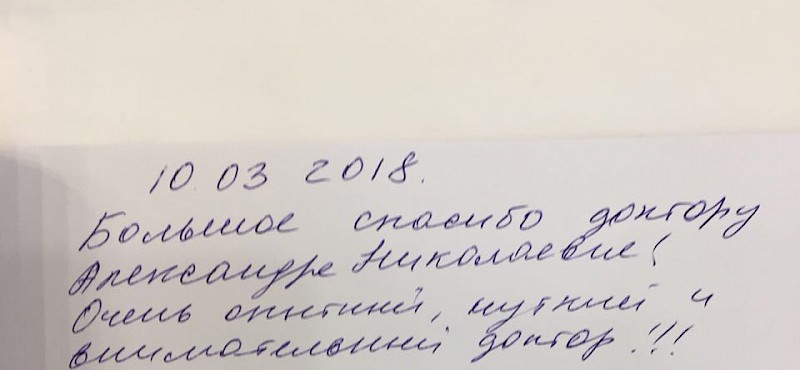 10.03 2018.
Большое спасибо доктору
Александре Николаевне!
Очень опытный, чуткий и
внимательный доктор!!!